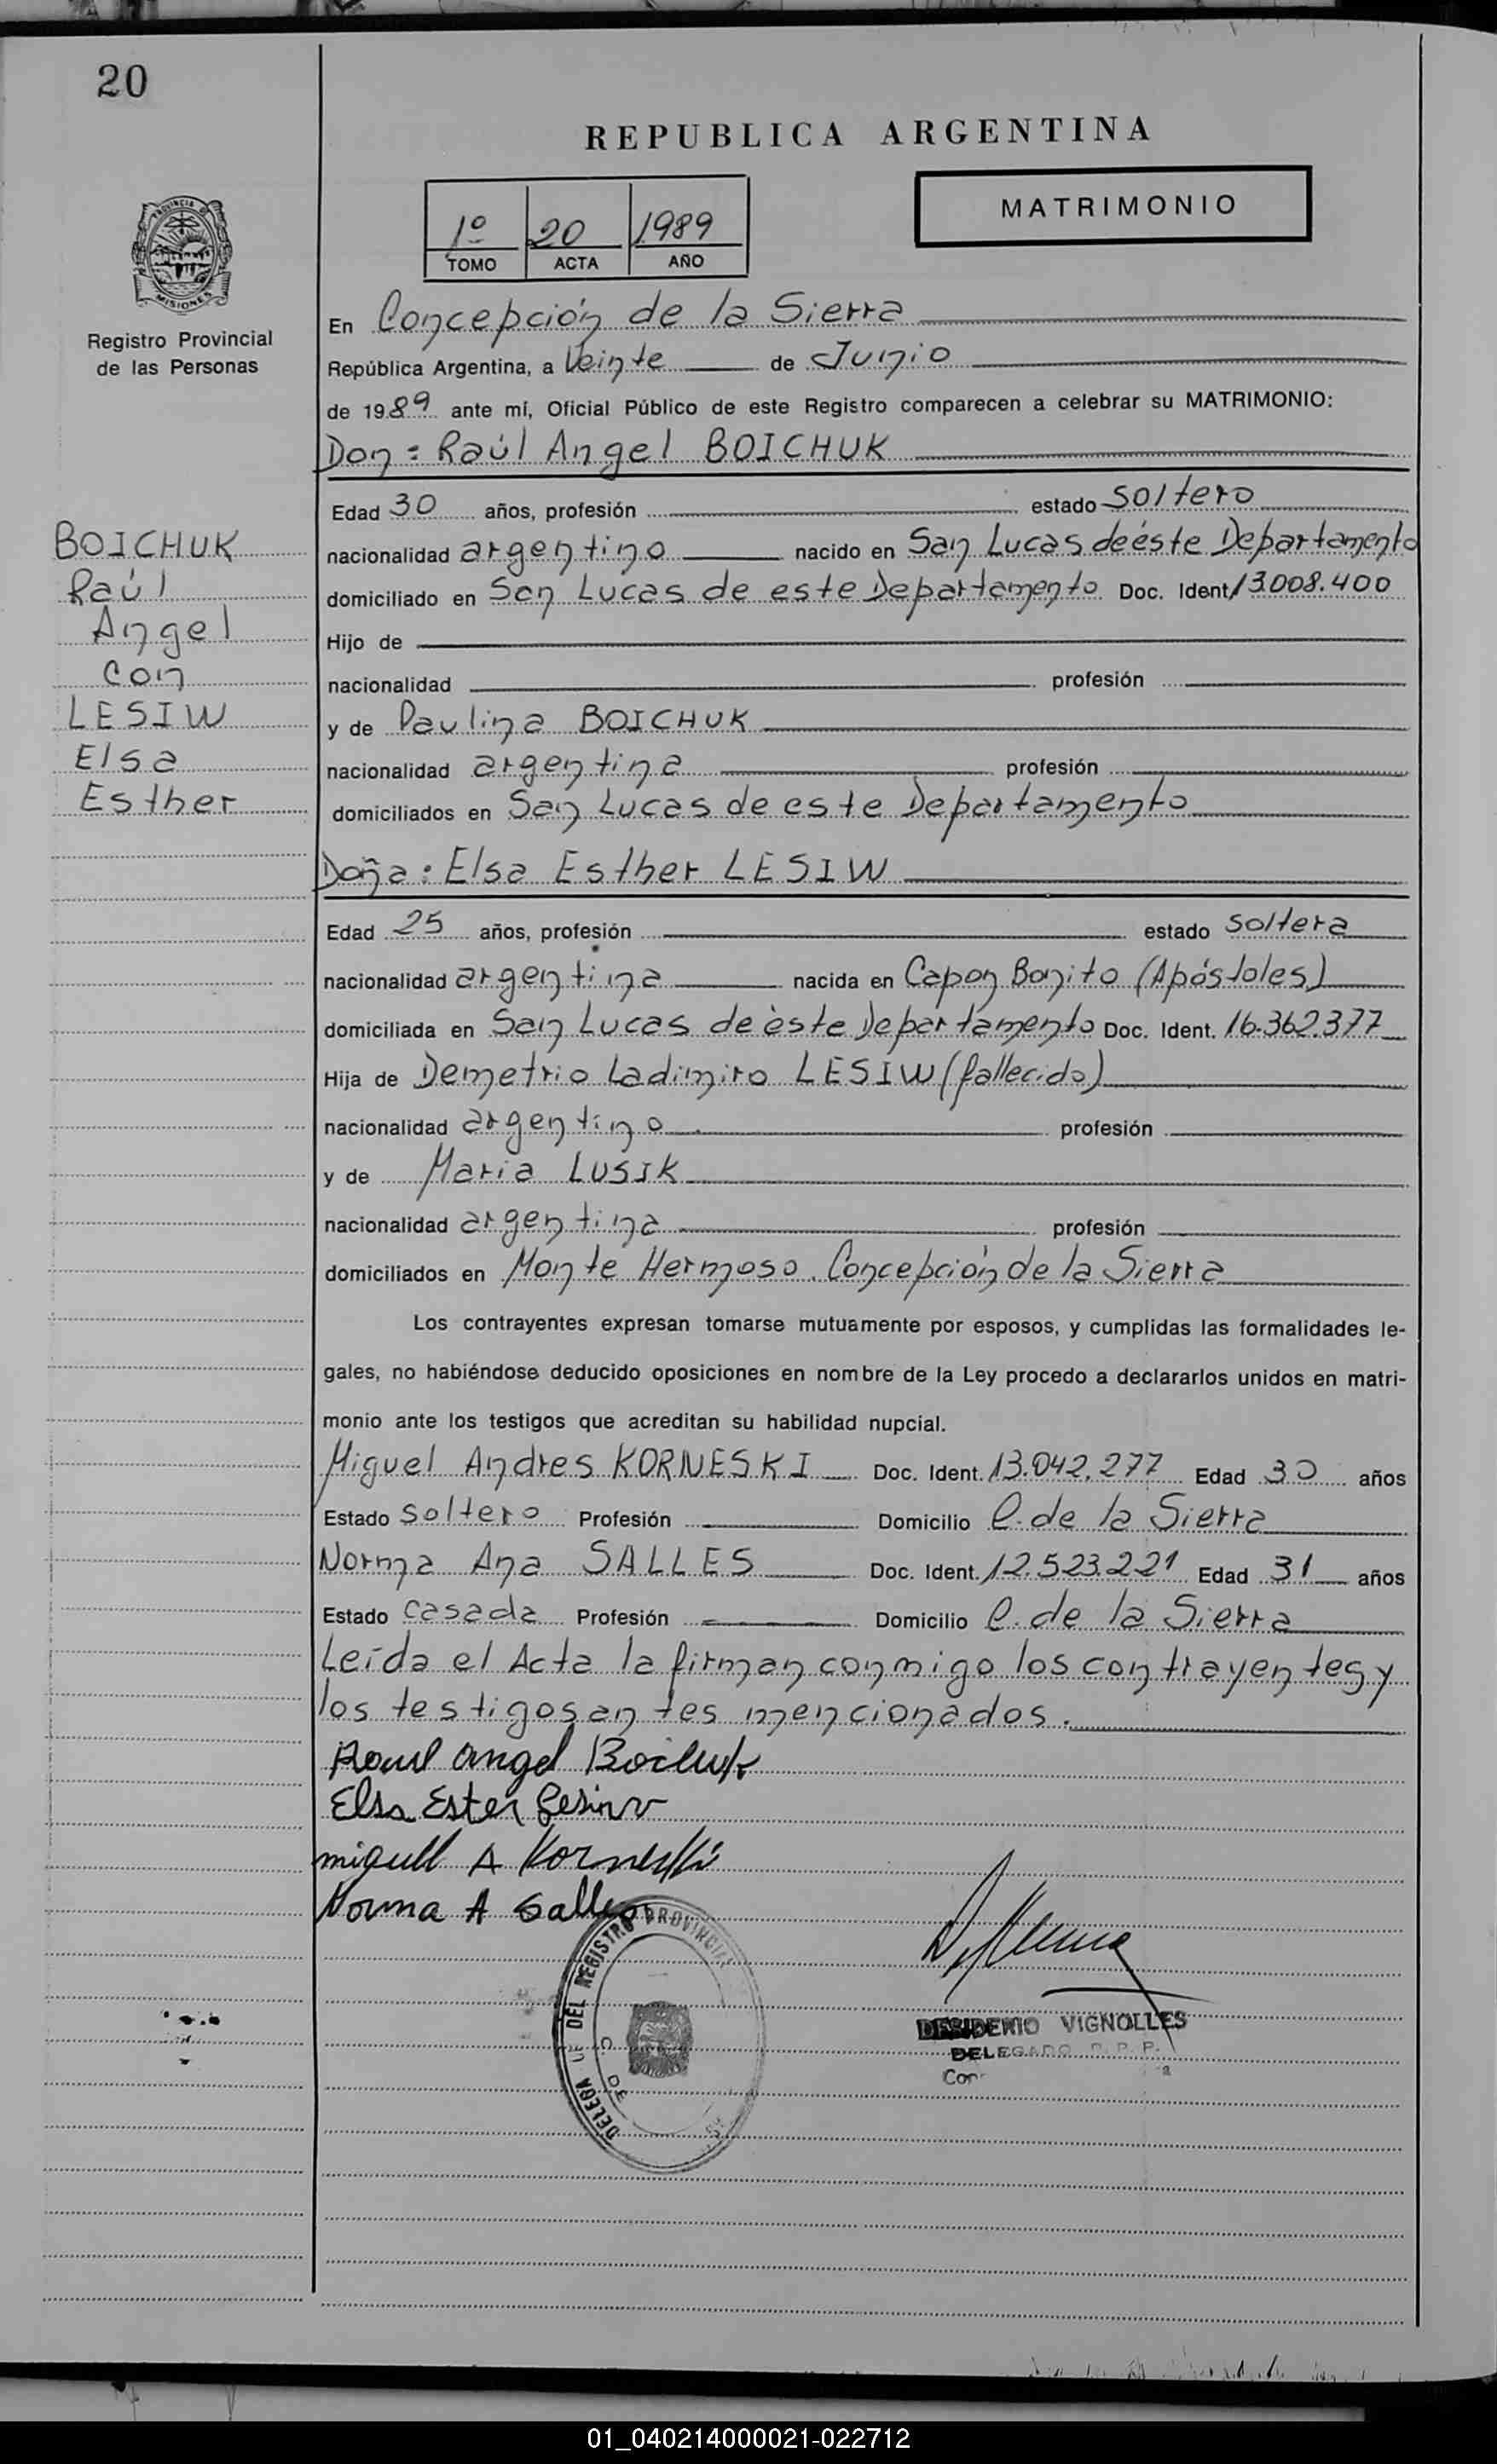 20
REPUBLICA ARGENTINA
MATRIMONIO
1º 20 1989
TOMO ACTA AÑO
PROVINCIA D
MISIONES
Registro Provincial
de las Personas
En Concepción de la Sierra
República Argentina, a Veinte de Junio
de 1989 ante mí, Oficial Público de este Registro comparecen a celebrar su MATRIMONIO:
Don = Raúl Angel BOICHUK
Edad 30 años, profesión estado soltero
nacionalidad argentino nacido en San Lucas de éste Departamento
domiciliado en San Lucas de este Departamento Doc. Ident. 13.008.400
Hijo de
nacionalidad profesión
y de Paulina BOICHUK
nacionalidad argentina profesión
domiciliados en San Lucas de este Departamento
BOICHUK
Raúl
Angel
con
LESIW
Elsa
Esther
Doña: Elsa Esther LESIW
Edad 25 años, profesión estado soltera
nacionalidad argentina nacida en Capon Bonito (Apóstoles)
domiciliada en San Lucas de èste Departamento Doc. Ident. 16.362.377
Hija de Demetrio Ladimiro LESIW (fallecido)
nacionalidad argentino profesión
y de Maria LUSIK
nacionalidad argentina profesión
domiciliados en Monte Hermoso. Concepción de la Sierra
Los contrayentes expresan tomarse mutuamente por esposos, y cumplidas las formalidades le-
gales, no habiéndose deducido oposiciones en nombre de la Ley procedo a declararlos unidos en matri-
monio ante los testigos que acreditan su habilidad nupcial.
Miguel Andres KORNESKI Doc. Ident. 13.042.277 Edad 30 años
Estado soltero Profesión Domicilio C. de la Sierra
Norma Ana SALLES Doc. Ident. 12.523.221 Edad 31 años
Estado casada Profesión Domicilio C. de la Sierra
Leída el Acta la firman conmigo los contrayentes y
los testigos antes mencionados.
Raul Angel Boichuk
Elsa Ester Lesiw
miguel A Korneski
Norma A Salles
DEL REGISTRO PROVINCIAL
C. DE
DESIDERIO VIGNOLLES
DELEGADO R. P. P.
01_040214000021-022712